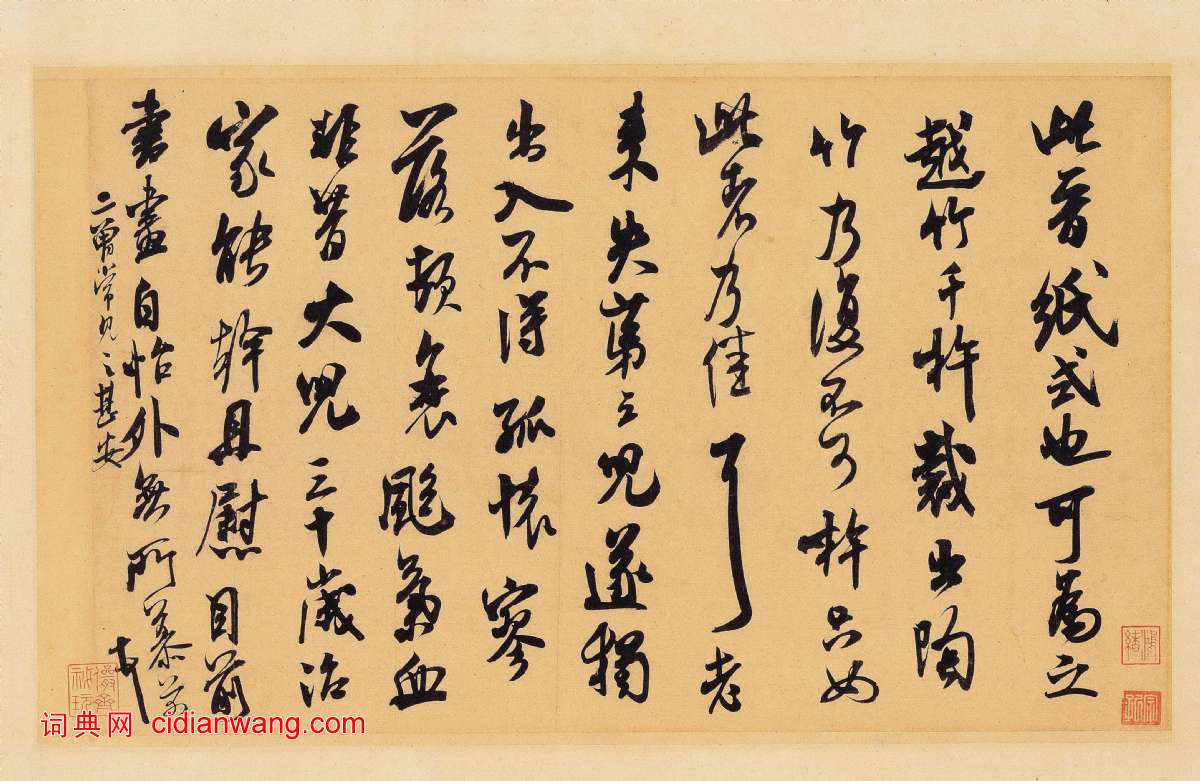 此晉紙式也可為之
越竹千杵裁出陶
竹乃復不可杵只如
此者乃佳耳老
來失第三兒遂獨
出入不得孤懷寥
落頓衰颯氣血
非昔大兒三十歲治
家能幹且慰目前
書畫自怡外無所慕芾
二曾常見之甚安
鴻緒
儼齋祕玩
词典网 cidianwang.com